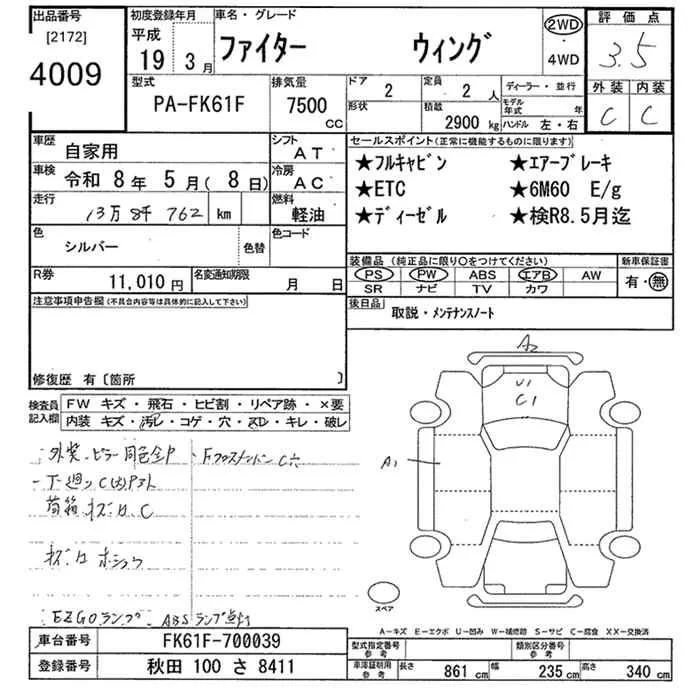 出品番号 初度登録年月 車名・グレード 2WD 評価点
[2172] 平成 ファイター ウィング ・ 3.5
4009 19年 3月 4WD
型式 排気量 ドア 定員 ディーラー・並行 外装 内装
PA-FK61F 7500 CC 2 2人 モデル年式 年 C C
形状 積載 2900 kg ハンドル 左・右
車歴 自家用 シフト AT セールスポイント(正常に機能するものに限ります)
車検 令和 8年 5月(8日) 冷房 AC ★フルキャビン ★エアーブレーキ
走行 13万 8千 762 km 燃料 軽油 ★ETC ★6M60 E/g
★ディーゼル ★検R8.5月迄
色 シルバー 色替 色コード
装備品(純正品に限り○をつけてください) 新車保証書
R券 11,010円 名変通知期限 月 日 PS PW ABS エアB AW 有・無
SR ナビ TV カワ
注意事項申告欄(不具合内容等は具体的に記入して下さい) 後日品 取説・メンテナンスノート
修復歴 有〔箇所 〕
A2
U1
C1
A1
検査員記入欄 FW キズ・飛石・ヒビ割・リペア跡・×要
内装 キズ・汚レ・コゲ・穴・スレ・キレ・破レ
外装 ピラー同色全P
下廻り C
荷箱 キズ凹 C
キズ凹 ホシュウ
EZGOランプ ABSランプ点灯
スペア
A-キズ E-エクボ U-凹み W-補修跡 S-サビ C-腐食 XX-交換済
車台番号 FK61F-700039 型式指定番号 参考 類別区分番号 参考
登録番号 秋田 100 さ 8411 車庫証明用 参考 長さ 861 cm 幅 235 cm 高さ 340 cm